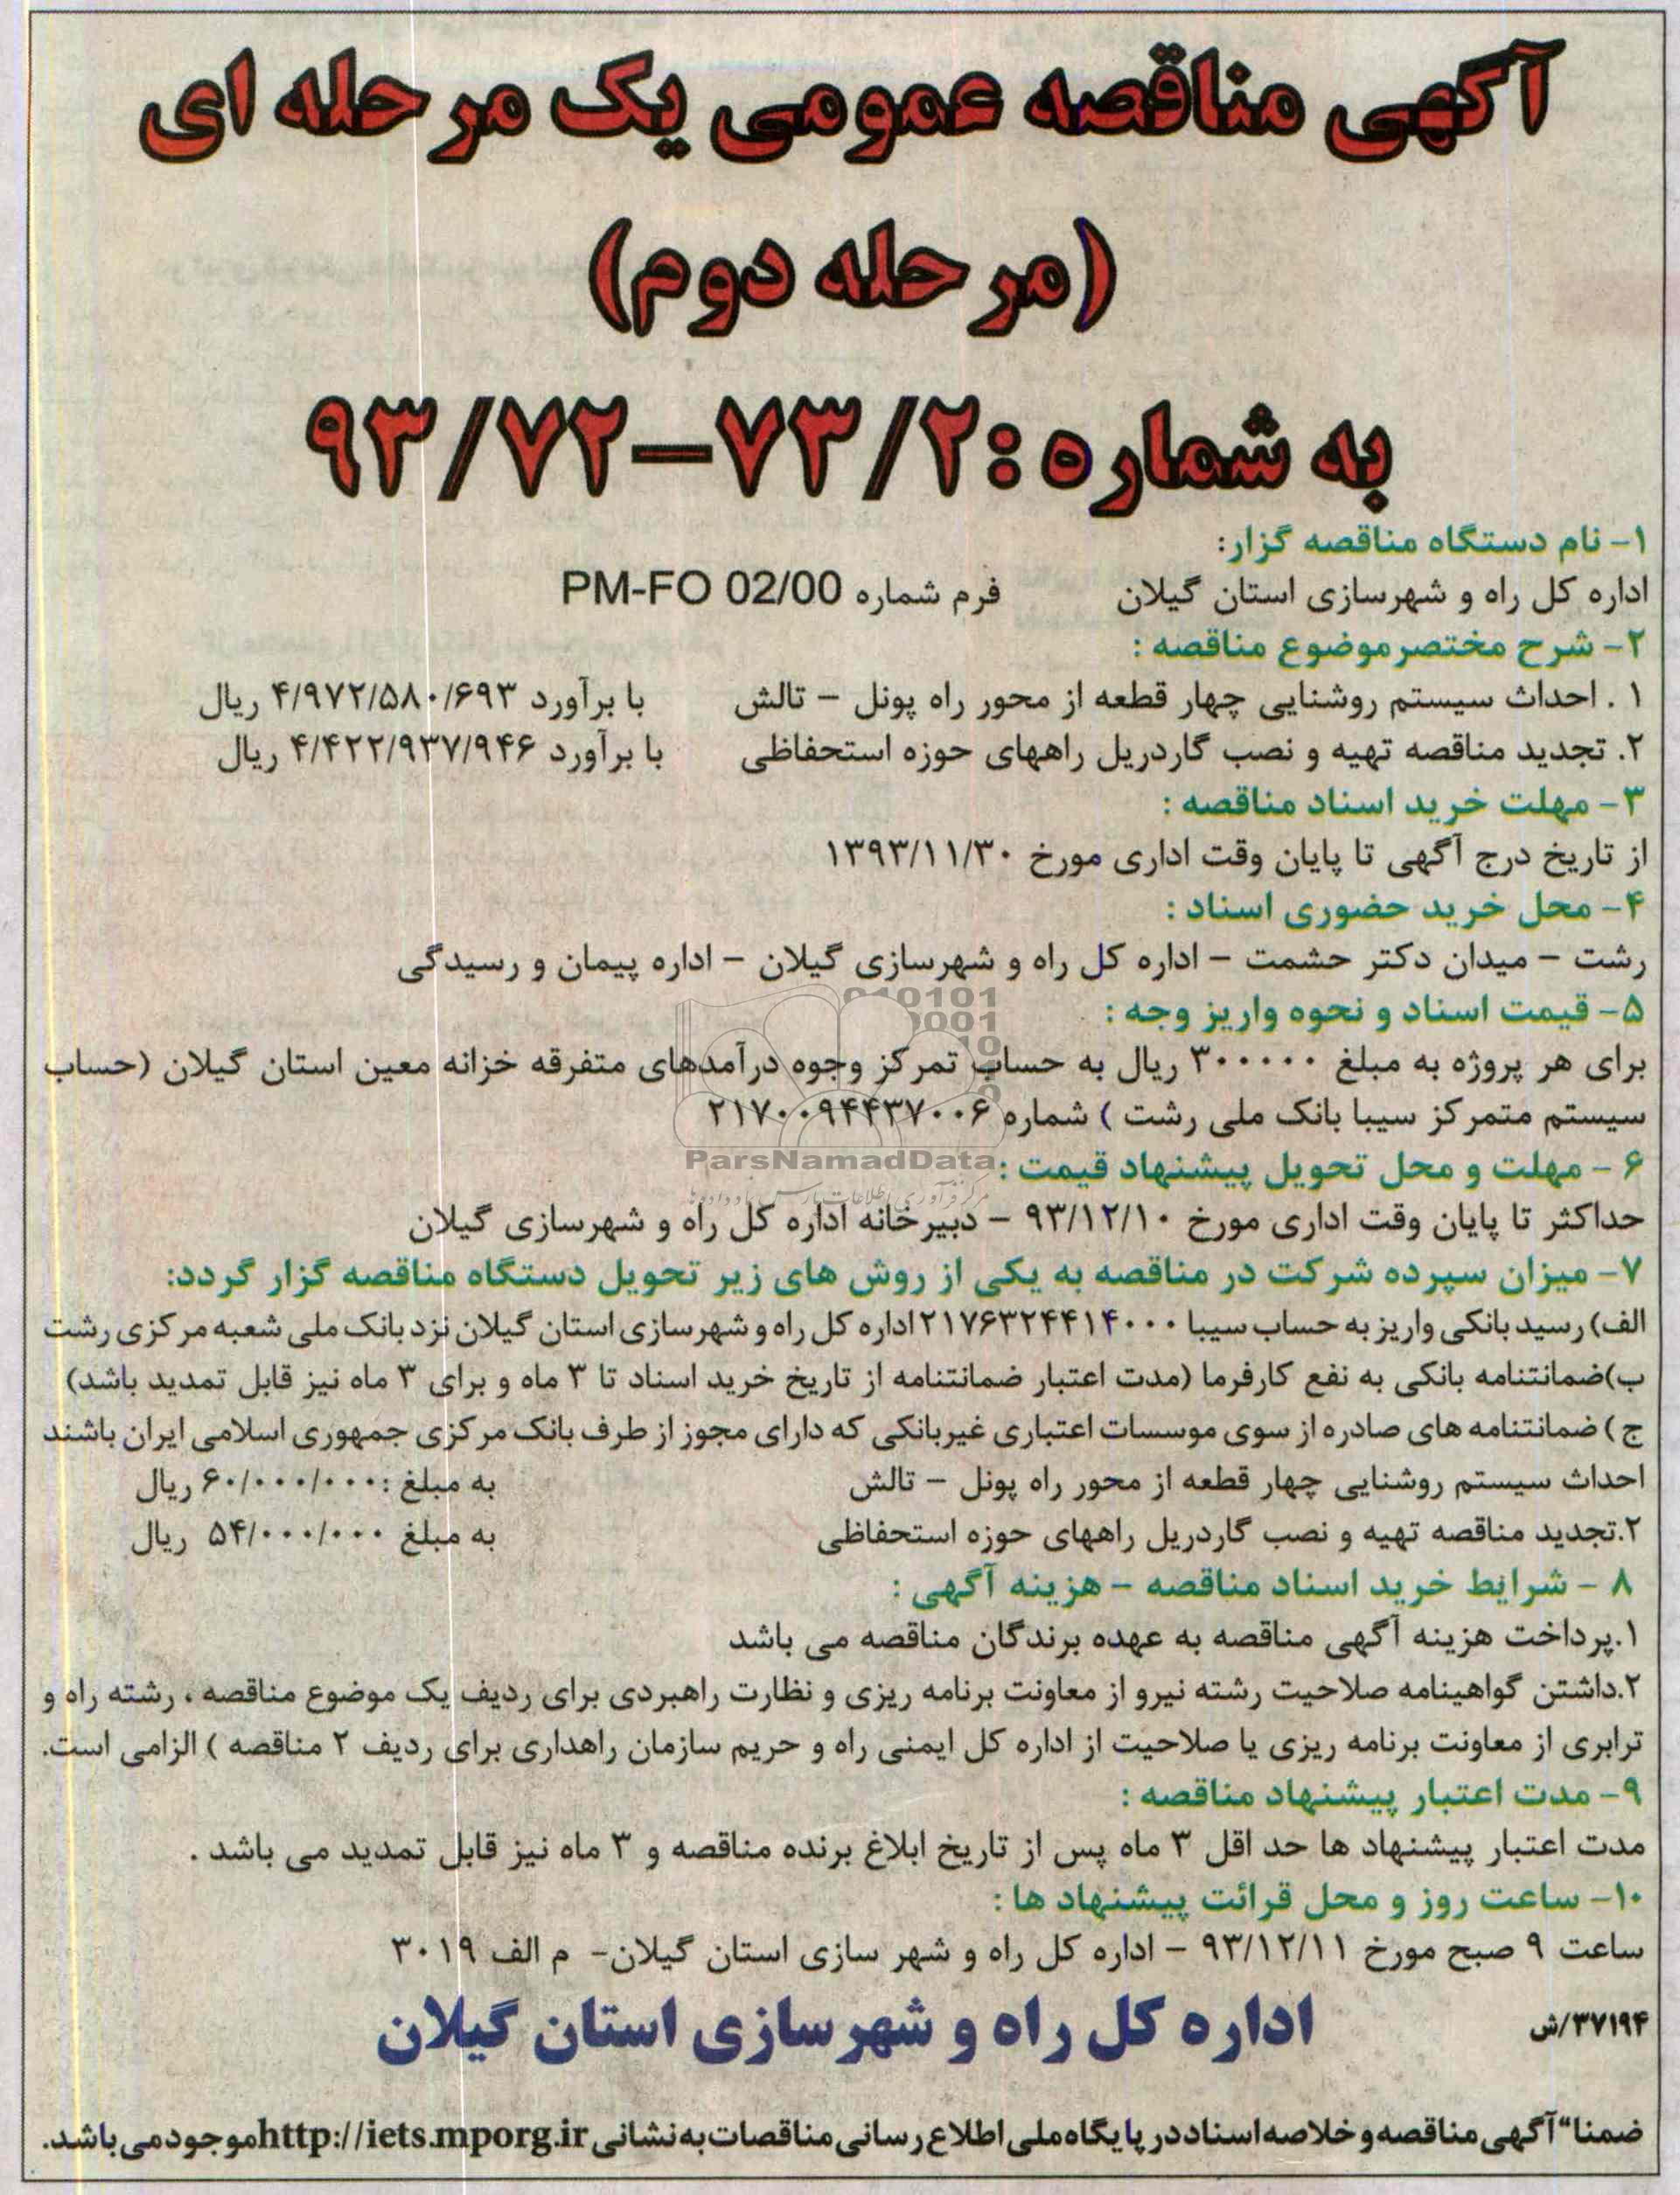 آگهی مناقصه عمومی یک مرحله ای
(مرحله دوم)
به شماره: ۹۳/۷۲-۷۳/۲
۱- نام دستگاه مناقصه گزار:
اداره کل راه و شهرسازی استان گیلان فرم شماره PM-FO 02/00
۲- شرح مختصر موضوع مناقصه :
۱ . احداث سیستم روشنایی چهار قطعه از محور راه پونل – تالش با برآورد ۴/۹۷۲/۵۸۰/۶۹۳ ریال
۲. تجدید مناقصه تهیه و نصب گاردریل راههای حوزه استحفاظی با برآورد ۴/۴۲۲/۹۳۷/۹۴۶ ریال
۳- مهلت خرید اسناد مناقصه :
از تاریخ درج آگهی تا پایان وقت اداری مورخ ۱۳۹۳/۱۱/۳۰
۴- محل خرید حضوری اسناد :
رشت – میدان دکتر حشمت – اداره کل راه و شهرسازی گیلان – اداره پیمان و رسیدگی
۵- قیمت اسناد و نحوه واریز وجه :
برای هر پروژه به مبلغ ۳۰۰۰۰۰ ریال به حساب تمرکز وجوه درآمدهای متفرقه خزانه معین استان گیلان (حساب
سیستم متمرکز سیبا بانک ملی رشت ) شماره ۲۱۷۰۰۹۴۴۳۷۰۰۶
ParsNamadData
۶ - مهلت و محل تحویل پیشنهاد قیمت :
حداکثر تا پایان وقت اداری مورخ ۹۳/۱۲/۱۰ – دبیرخانه اداره کل راه و شهرسازی گیلان
۷- میزان سپرده شرکت در مناقصه به یکی از روش های زیر تحویل دستگاه مناقصه گزار گردد:
الف) رسید بانکی واریز به حساب سیبا ۲۱۷۶۳۲۴۴۱۴۰۰۰ اداره کل راه و شهرسازی استان گیلان نزد بانک ملی شعبه مرکزی رشت
ب)ضمانتنامه بانکی به نفع کارفرما (مدت اعتبار ضمانتنامه از تاریخ خرید اسناد تا ۳ ماه و برای ۳ ماه نیز قابل تمدید باشد)
ج ) ضمانتنامه های صادره از سوی موسسات اعتباری غیربانکی که دارای مجوز از طرف بانک مرکزی جمهوری اسلامی ایران باشند
احداث سیستم روشنایی چهار قطعه از محور راه پونل – تالش به مبلغ :۶۰/۰۰۰/۰۰۰ ریال
۲.تجدید مناقصه تهیه و نصب گاردریل راههای حوزه استحفاظی به مبلغ ۵۴/۰۰۰/۰۰۰ ریال
۸ - شرایط خرید اسناد مناقصه - هزینه آگهی :
۱.پرداخت هزینه آگهی مناقصه به عهده برندگان مناقصه می باشد
۲.داشتن گواهینامه صلاحیت رشته نیرو از معاونت برنامه ریزی و نظارت راهبردی برای ردیف یک موضوع مناقصه ، رشته راه و
ترابری از معاونت برنامه ریزی یا صلاحیت از اداره کل ایمنی راه و حریم سازمان راهداری برای ردیف ۲ مناقصه ) الزامی است.
۹- مدت اعتبار پیشنهاد مناقصه :
مدت اعتبار پیشنهاد ها حد اقل ۳ ماه پس از تاریخ ابلاغ برنده مناقصه و ۳ ماه نیز قابل تمدید می باشد .
۱۰- ساعت روز و محل قرائت پیشنهاد ها :
ساعت ۹ صبح مورخ ۹۳/۱۲/۱۱ – اداره کل راه و شهر سازی استان گیلان- م الف ۳۰۱۹
اداره کل راه و شهرسازی استان گیلان
۳۷۱۹۴/ش
ضمنا“ آگهی مناقصه و خلاصه اسناد در پایگاه ملی اطلاع رسانی مناقصات به نشانی http://iets.mporg.ir موجود می باشد.